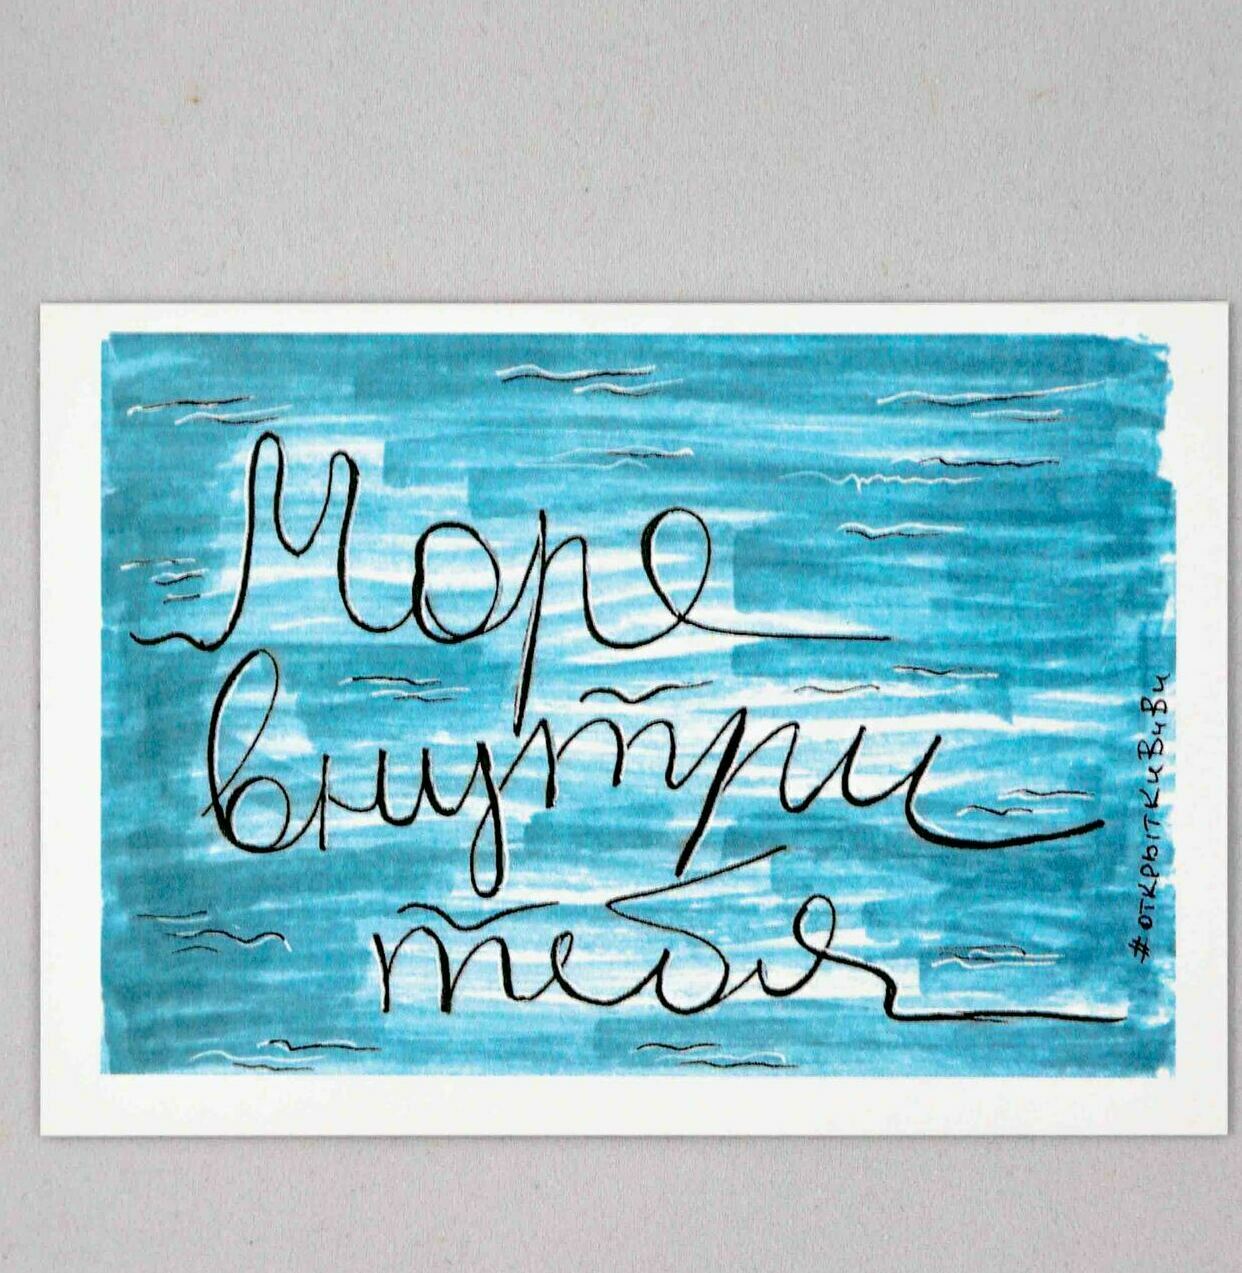 Море
внутри
тебя
#открыткиВиВи